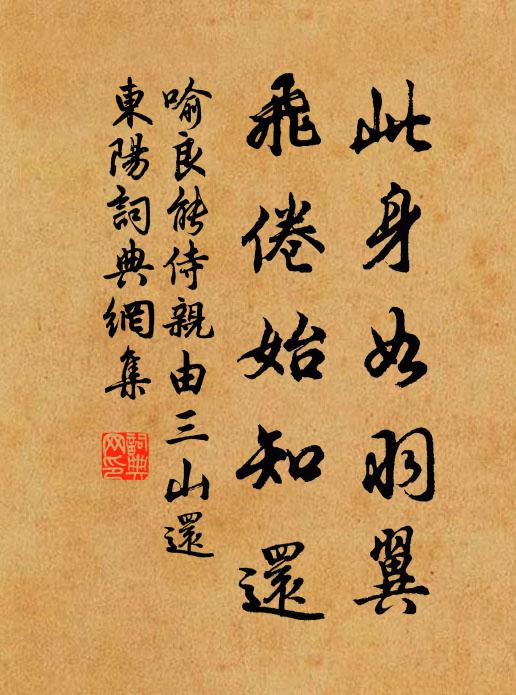 此身如羽翼
飛倦始知還
喻良能侍親由三山還
東陽詞典網集
詞典網印